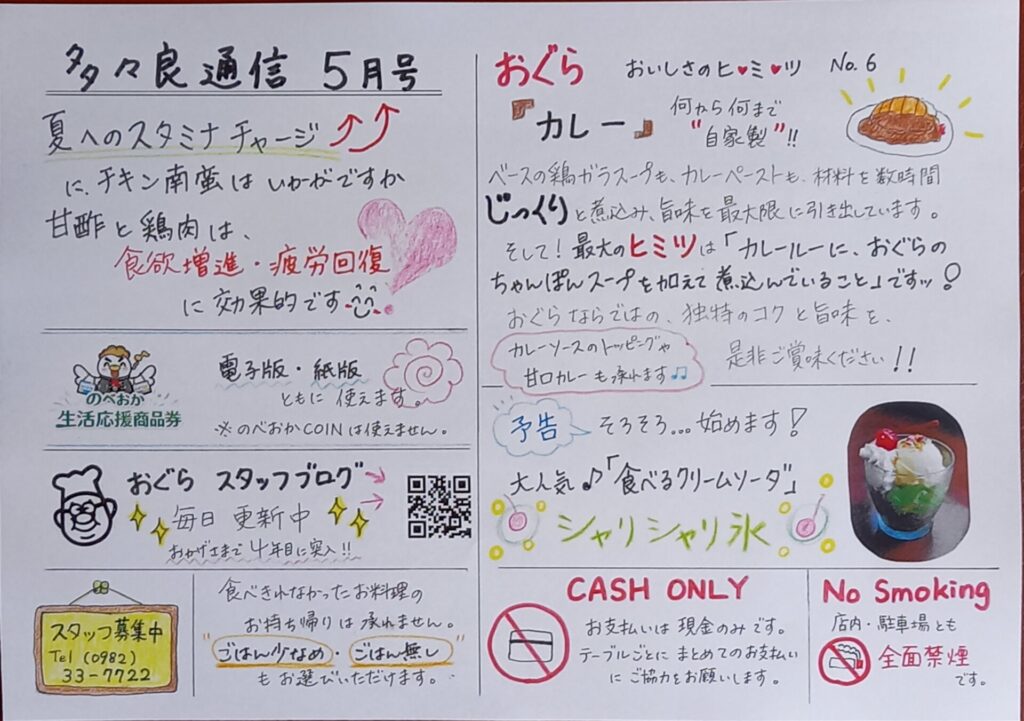 多々良通信 5月号
夏へのスタミナチャージ
に、チキン南蛮はいかがですか
甘酢と鶏肉は、
食欲増進・疲労回復
に効果的です
のべおか
生活応援商品券
電子版・紙版
ともに使えます。
※のべおかCOINは使えません。
おぐら スタッフブログ
毎日 更新中
おかげさまで4年目に突入!!
スタッフ募集中
Tel (0982)
33-7722
食べきれなかったお料理の
お持ち帰りは承れません。
"ごはん少なめ・ごはん無し"
もお選びいただけます。
おぐら おいしさのヒ♥ミ♥ツ No.6
『カレー』
何から何まで
"自家製"!!
ベースの鶏ガラスープも、カレーペーストも、材料を数時間
じっくりと煮込み、旨味を最大限に引き出しています。
そして!最大のヒミツは「カレールーに、おぐらの
ちゃんぽんスープを加えて煮込んでいること」ですッ!
おぐらならではの、独特のコクと旨味を、
是非ご賞味ください!!
カレーソースのトッピングや
甘口カレーも承れます♫
予告 そろそろ...始めます!
大人気♪「食べるクリームソーダ」
シャリシャリ氷
CASH ONLY
お支払いは現金のみです。
テーブルごとにまとめてのお支払い
にご協力をお願いします。
No Smoking
店内・駐車場とも
全面禁煙
です。